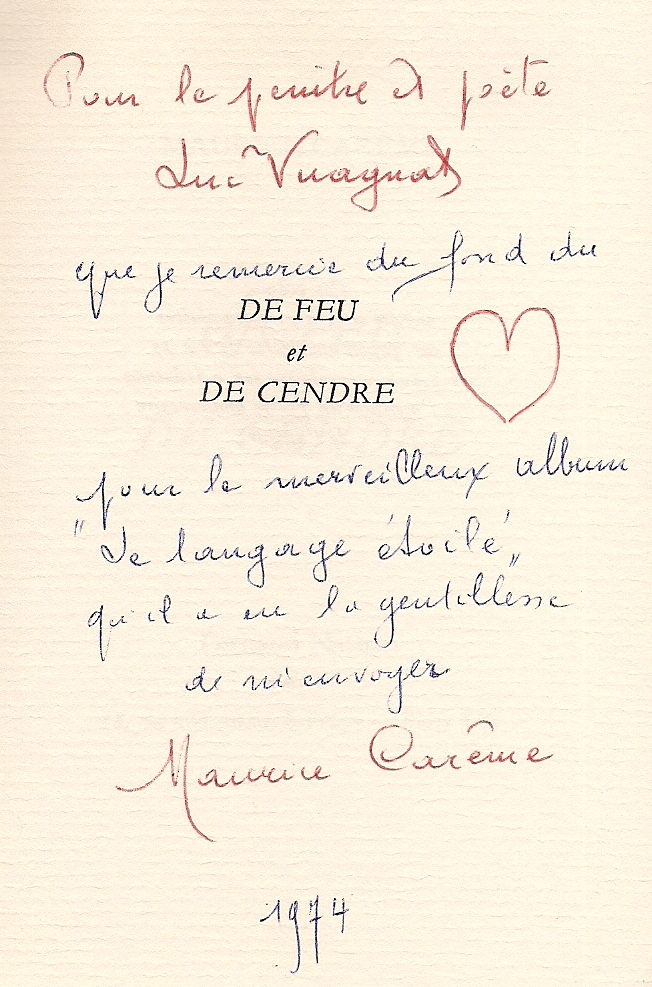 Pour le peintre et poète
Luc Vuagnat
que je remercie du fond du
DE FEU
et
DE CENDRE
pour le merveilleux album
"Le langage étoilé"
qu'il a eu la gentillesse
de m'envoyer
Maurice Carême
1974